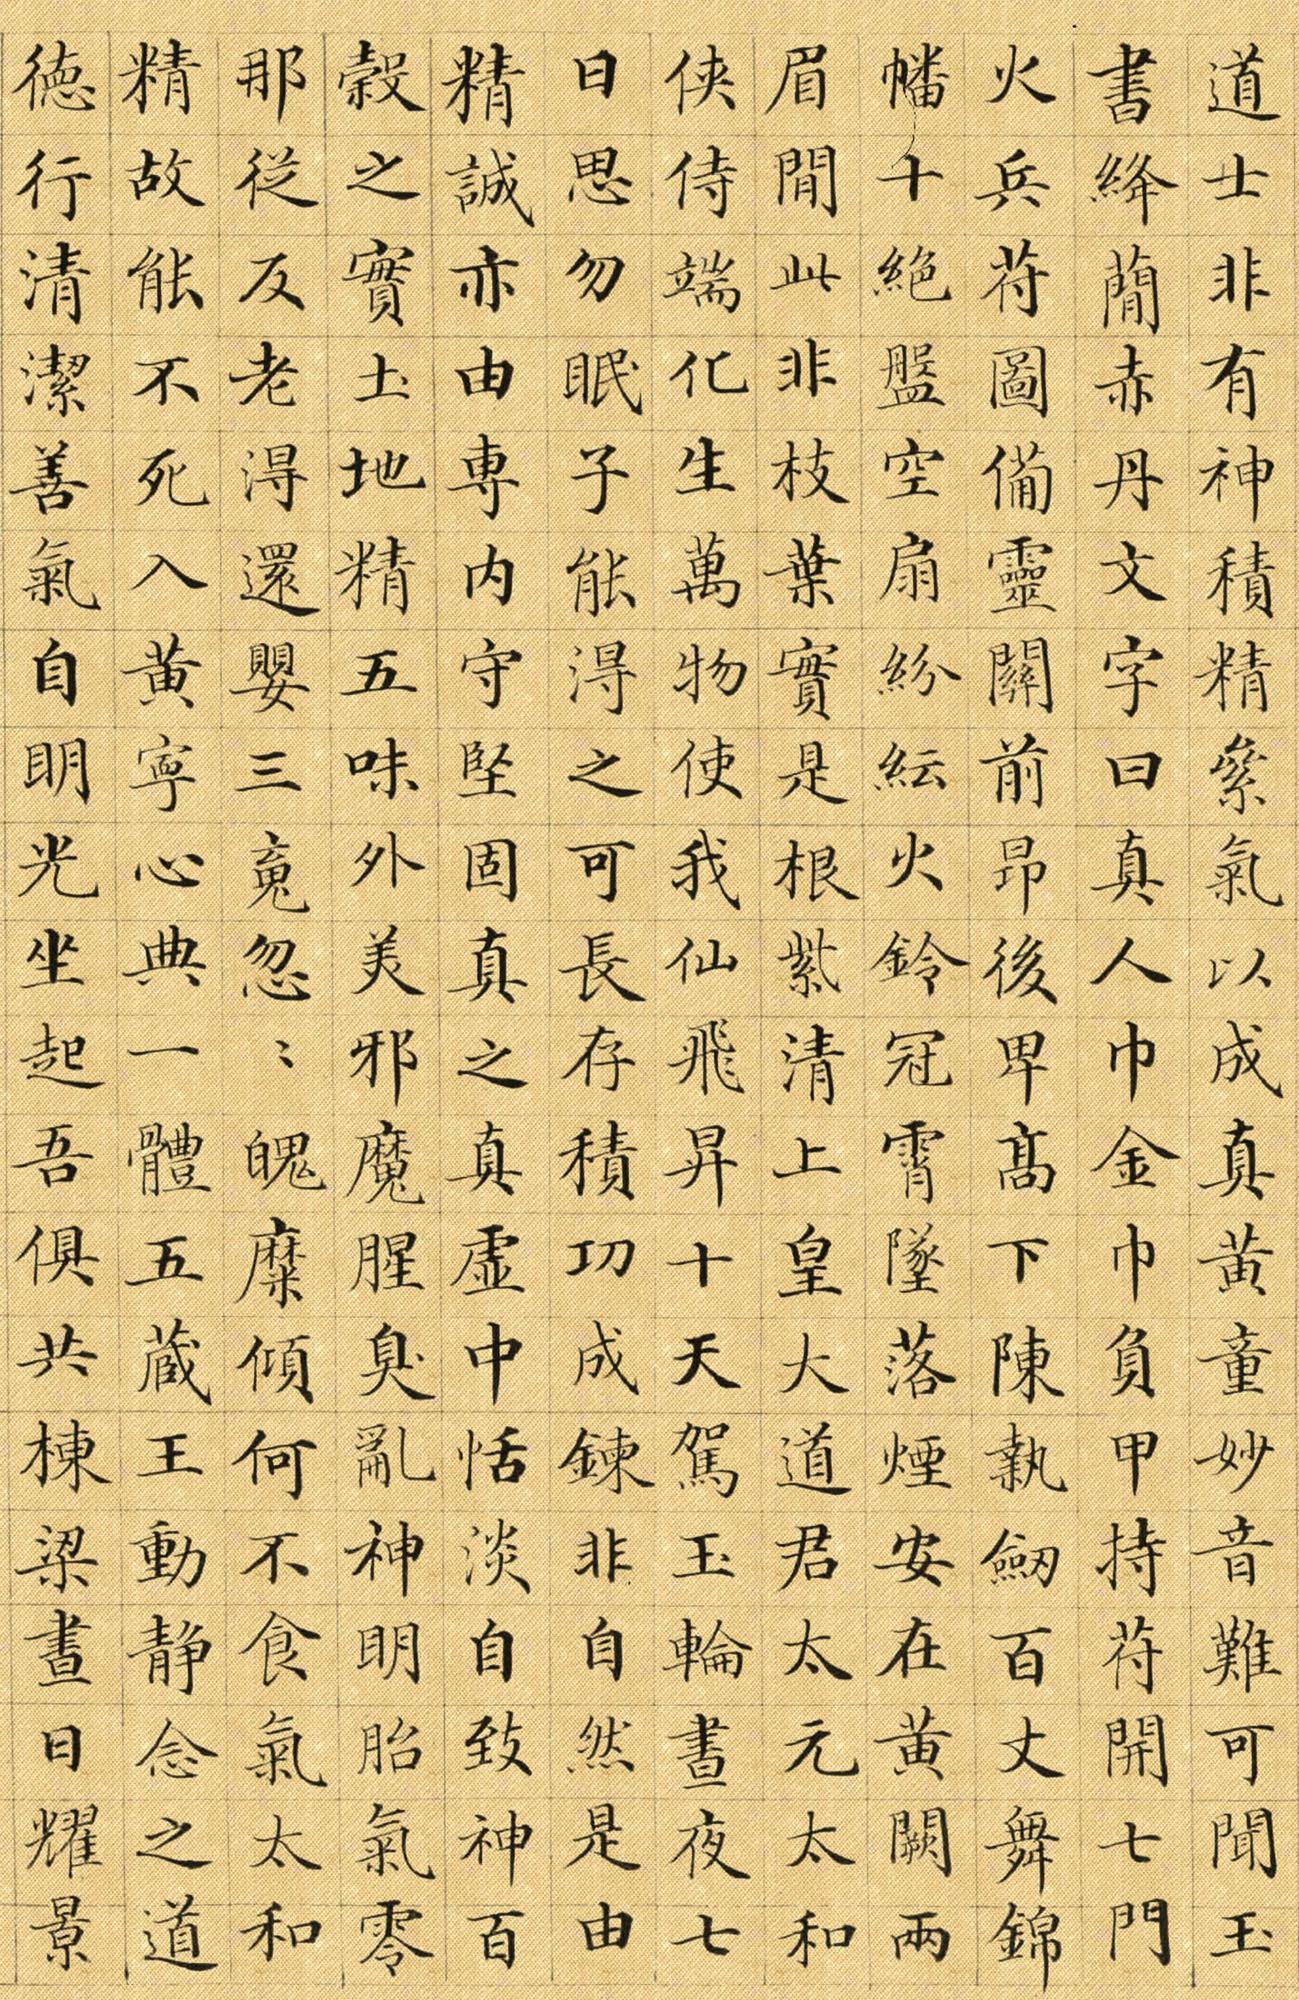 道士非有神積精絫氣以成真黃童妙音難可聞玉
書絳蕳赤丹文字曰真人巾金巾負甲持苻開七門
火兵苻圖備靈關前昂後卑高下陳執劒百丈舞錦
幡十絕盤空扇紛紜火鈴冠霄墜落煙安在黃闕兩
眉間此非枝葉實是根紫清上皇大道君太元太和
俠侍端化生萬物使我仙飛昇十天駕玉輪晝夜七
日思勿眠子能得之可長存積功成鍊非自然是由
精誠亦由專內守堅固真之真虛中恬淡自致神百
穀之實土地精五味外美邪魔腥臭亂神明胎氣零
那從反老得還嬰三魂忽〻魄糜傾何不食氣太和
精故能不死入黃寧心典一體五藏王動静念之道
德行清潔善氣自明光坐起吾俱共棟梁晝日耀景